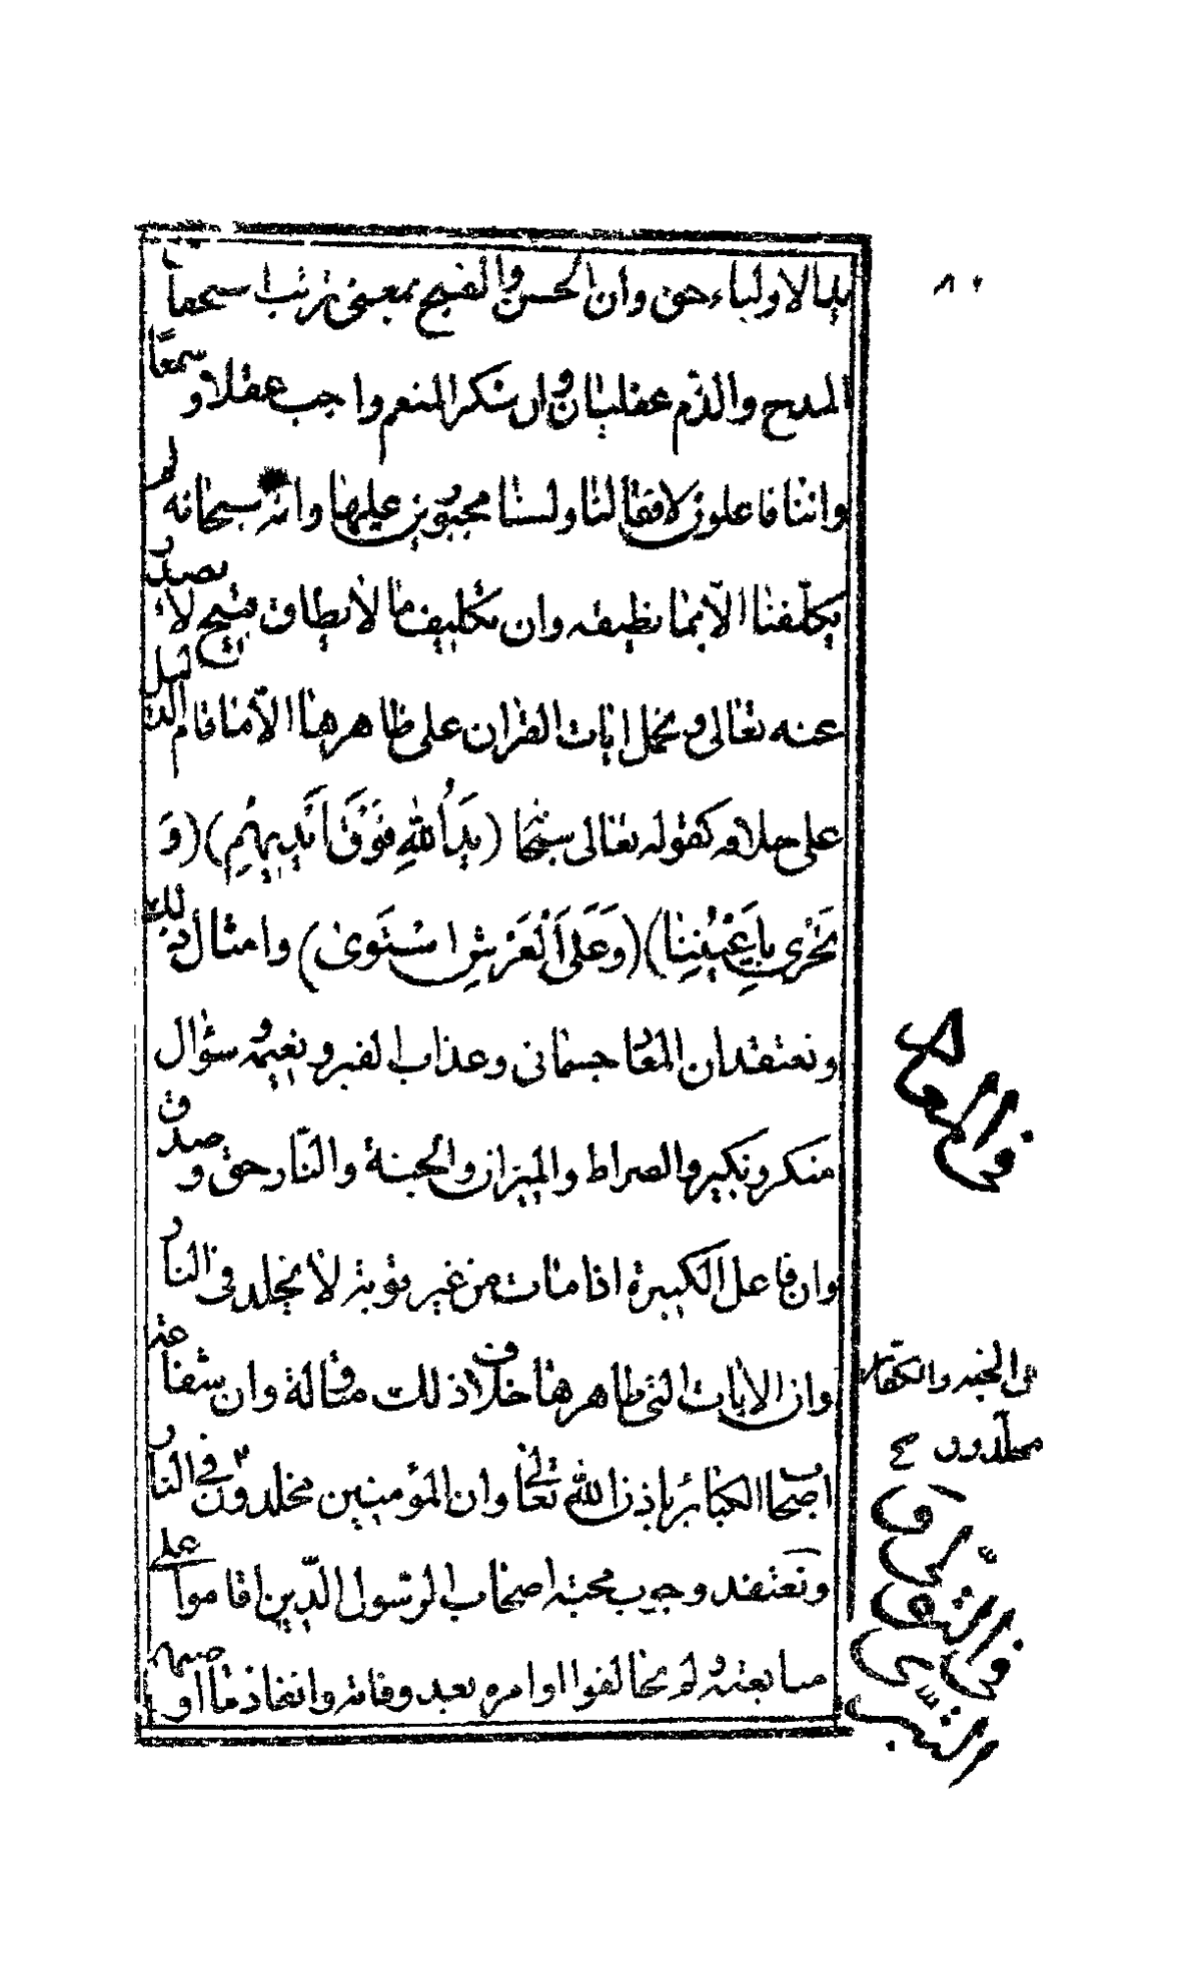 ٨٠
يد الاولياء حق وان الحسن والقبيح بمعنى ترتب استحقاق
المدح والذم عقليان وان شكر المنعم واجب عقلا وسمعًا
واننا فاعلون لافعالنا ولسنا مجبورين عليها وانه سبحانه لم
يكلّفنا الّا بما نطيقه وان تكليف ما لا يطاق قبيح لا يصدر
عنه تعالى ونحمل ايات القران على ظاهرها الّا ما قام الدليل
على خلافه كقوله تعالى سبحانه (يَدُ اللهِ فَوْقَ اَيْدِيهِمْ) (وَ
تَجْرِي بِاَعْيُنِنَا) (وَعَلَى اَلْعَرْشِ اسْتَوىٰ) وامثال ذلك
ونعتقد ان المعاد جسماني وعذاب القبر ونعيمه وسؤال
منكر ونكير والصراط والميزان والجنة والنّار حق وصدق
وان فاعل الكبيرة اذا مات من غير توبة لا يخلد في النار
وان الايات التي ظاهرها خلاف ذلك متاولة وان شفاعته
اصحاب الكبائر باذن الله تعالى وان المؤمنين مخلدون في النار
ونعتقد وجوب محبة اصحاب الرسول الّذين اقاموا على
متابعته ولم يخالفوا اوامره بعد وفاته وانفاذ ما اوصيهم
في المعاد
في الجنه والكفار
مخلّدون
في التولّى
والتبرّى